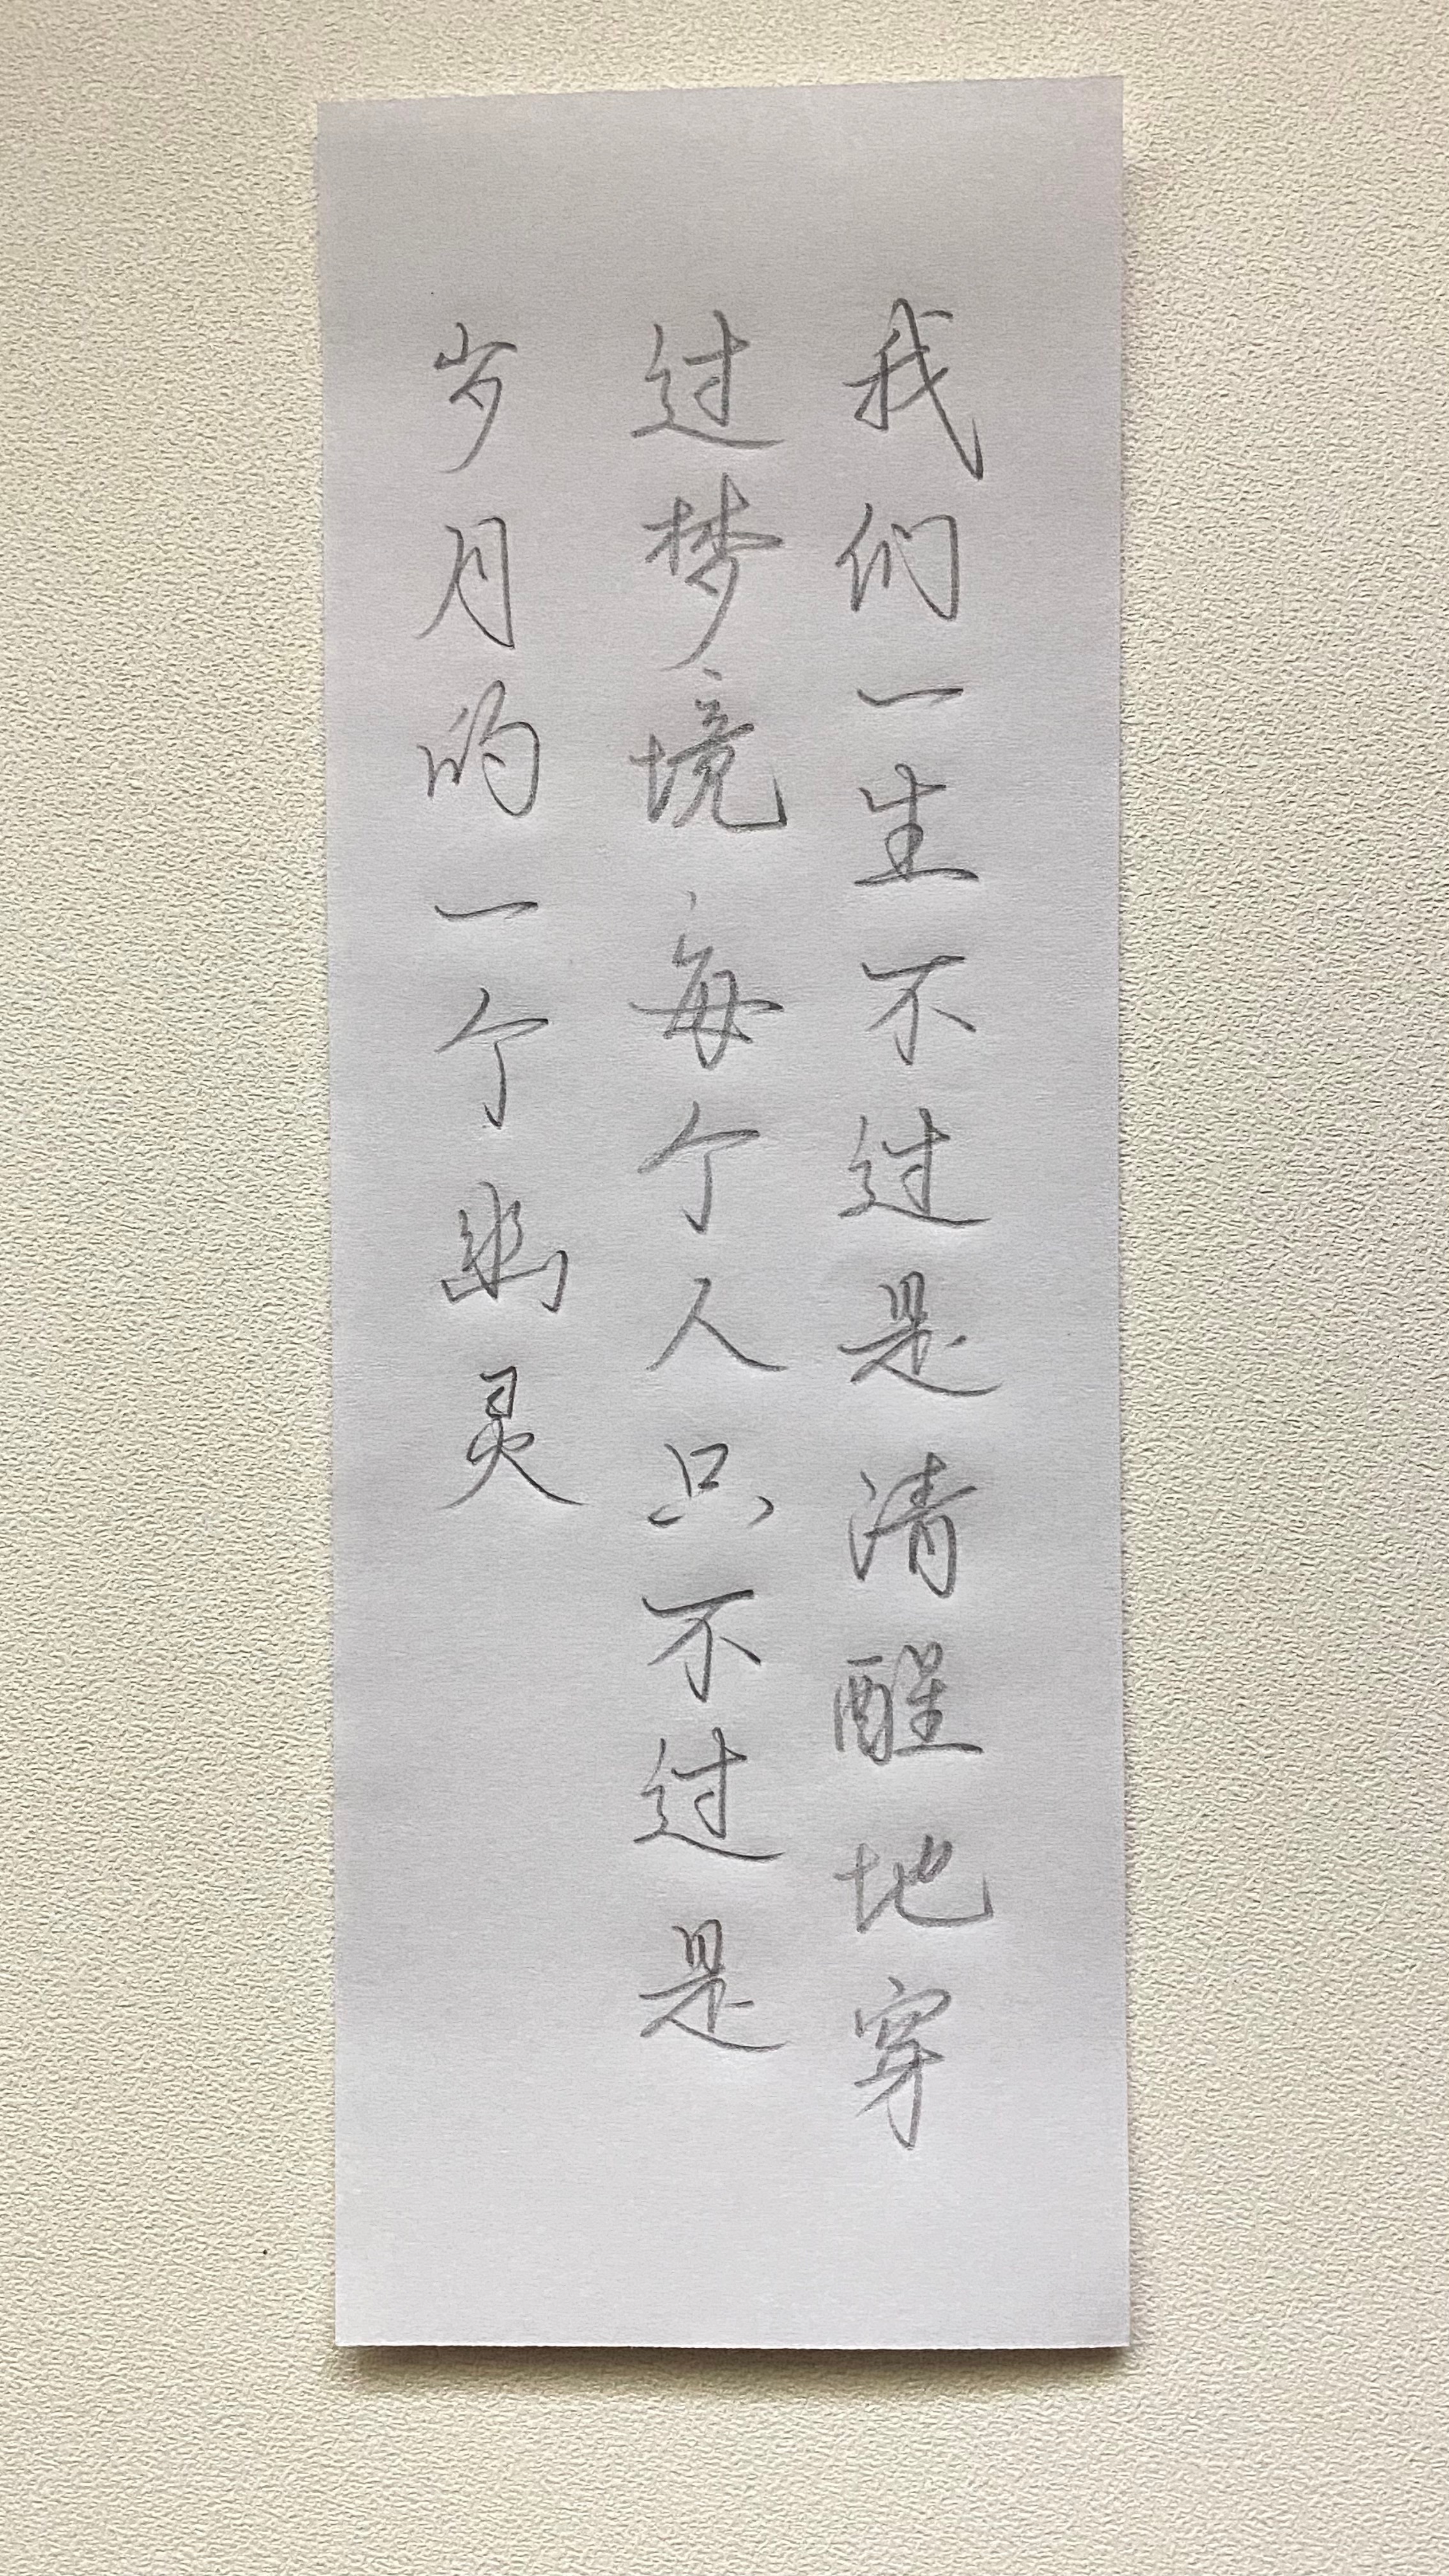 我们一生不过是清醒地穿
过梦境每个人只不过是
岁月的一个幽灵